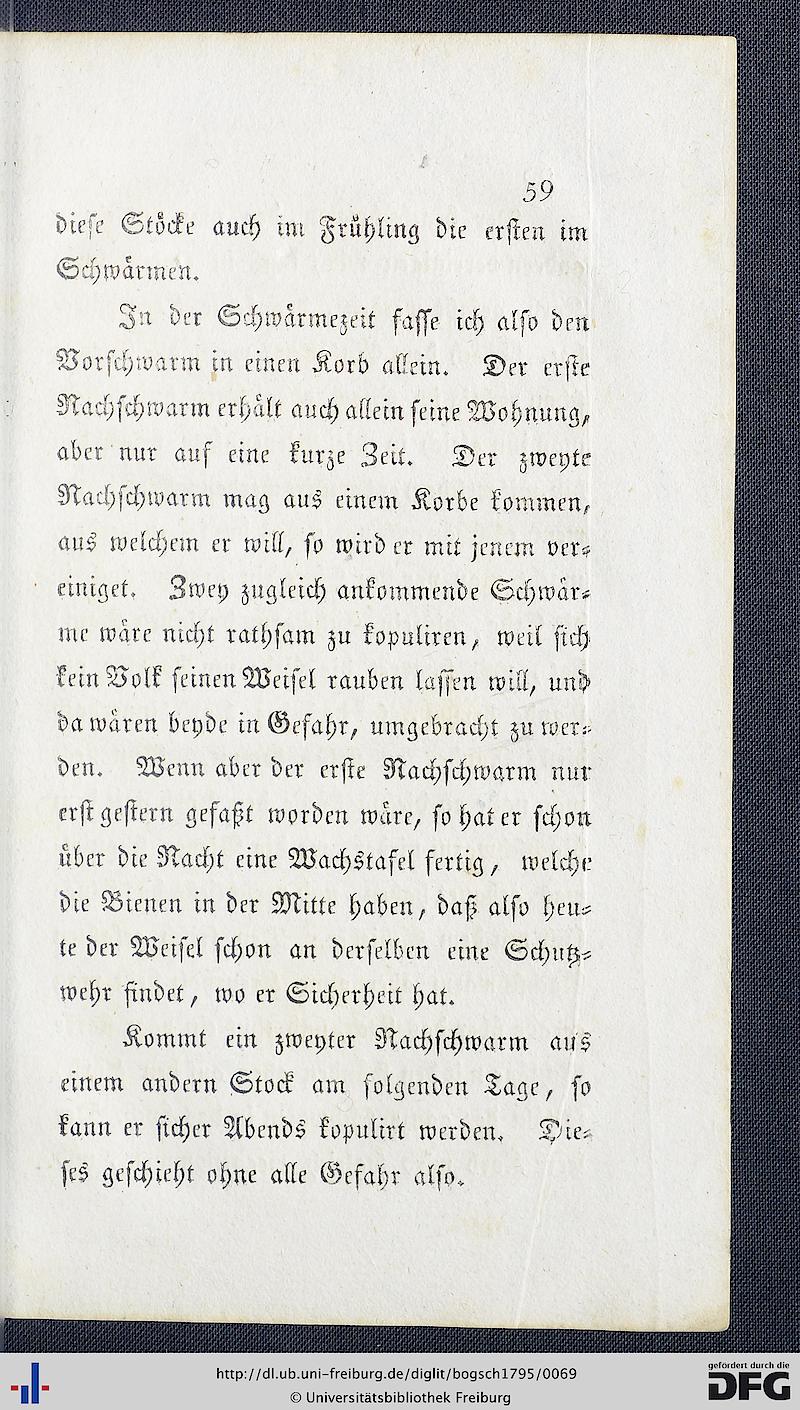 59
diese Stöcke auch im Frühling die ersten im
Schwärmen.
In der Schwärmezeit fasse ich also den
Vorschwarm in einen Korb allein. Der erste
Nachschwarm erhält auch allein seine Wohnung,
aber nur auf eine kurze Zeit. Der zweyte
Nachschwarm mag aus einem Korbe kommen,
aus welchem er will, so wird er mit jenem ver-
einiget. Zwey zugleich ankommende Schwär-
me wäre nicht rathsam zu kopuliren, weil sich
kein Volk seinen Weisel rauben lassen will, und
da wären beyde in Gefahr, umgebracht zu wer-
den. Wenn aber der erste Nachschwarm nur
erst gestern gefaßt worden wäre, so hat er schon
über die Nacht eine Wachstafel fertig, welche
die Bienen in der Mitte haben, daß also heu-
te der Weisel schon an derselben eine Schutz-
wehr findet, wo er Sicherheit hat.
Kommt ein zweyter Nachschwarm aus
einem andern Stock am folgenden Tage, so
kann er sicher Abends kopulirt werden. Die-
ses geschieht ohne alle Gefahr also.
http://dl.ub.uni-freiburg.de/diglit/bogsch1795/0069
© Universitätsbibliothek Freiburg
gefördert durch die
DFG